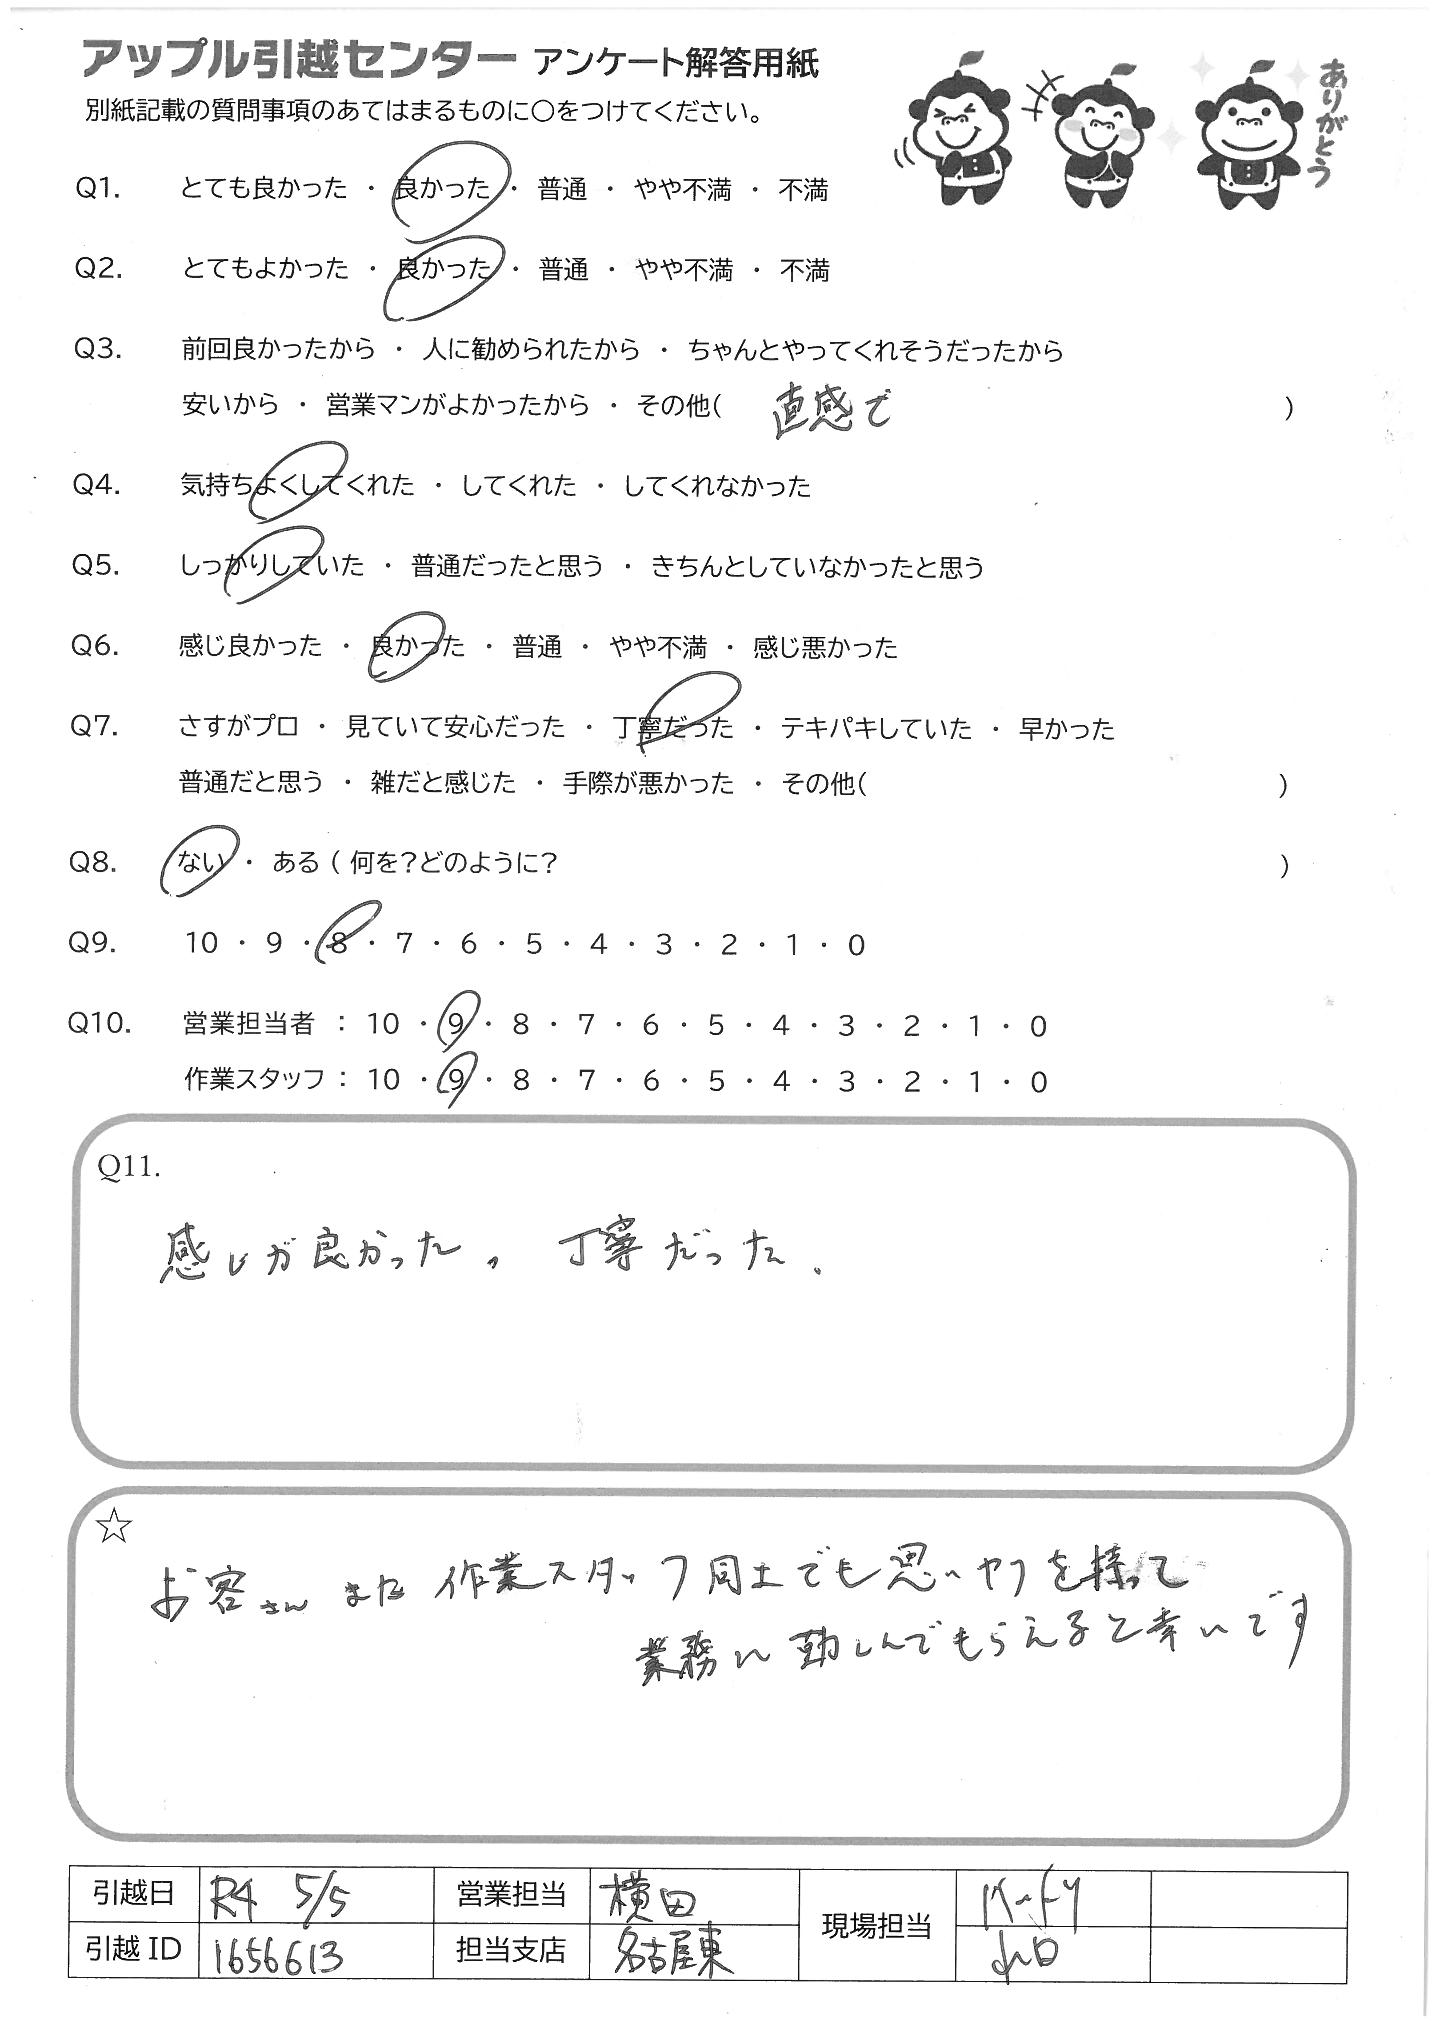 アップル引越センター アンケート解答用紙
別紙記載の質問事項のあてはまるものに○をつけてください。
ありがとう
Q1. とても良かった ・ 良かった ・ 普通 ・ やや不満 ・ 不満
Q2. とてもよかった ・ 良かった ・ 普通 ・ やや不満 ・ 不満
Q3. 前回良かったから ・ 人に勧められたから ・ ちゃんとやってくれそうだったから
安いから ・ 営業マンがよかったから ・ その他( 直感で )
Q4. 気持ちよくしてくれた ・ してくれた ・ してくれなかった
Q5. しっかりしていた ・ 普通だったと思う ・ きちんとしていなかったと思う
Q6. 感じ良かった ・ 良かった ・ 普通 ・ やや不満 ・ 感じ悪かった
Q7. さすがプロ ・ 見ていて安心だった ・ 丁寧だった ・ テキパキしていた ・ 早かった
普通だと思う ・ 雑だと感じた ・ 手際が悪かった ・ その他( )
Q8. ない ・ ある ( 何を?どのように? )
Q9. 10 ・ 9 ・ 8 ・ 7 ・ 6 ・ 5 ・ 4 ・ 3 ・ 2 ・ 1 ・ 0
Q10. 営業担当者 : 10 ・ 9 ・ 8 ・ 7 ・ 6 ・ 5 ・ 4 ・ 3 ・ 2 ・ 1 ・ 0
作業スタッフ : 10 ・ 9 ・ 8 ・ 7 ・ 6 ・ 5 ・ 4 ・ 3 ・ 2 ・ 1 ・ 0
Q11.
感じが良かった、丁寧だった.
☆
お客さん また 作業スタッフ同士でも思いやりを持って
業務に勤しんでもらえると幸いです
引越日 R4 5/5 営業担当 横田 現場担当
引越ID 1656613 担当支店 名古屋東